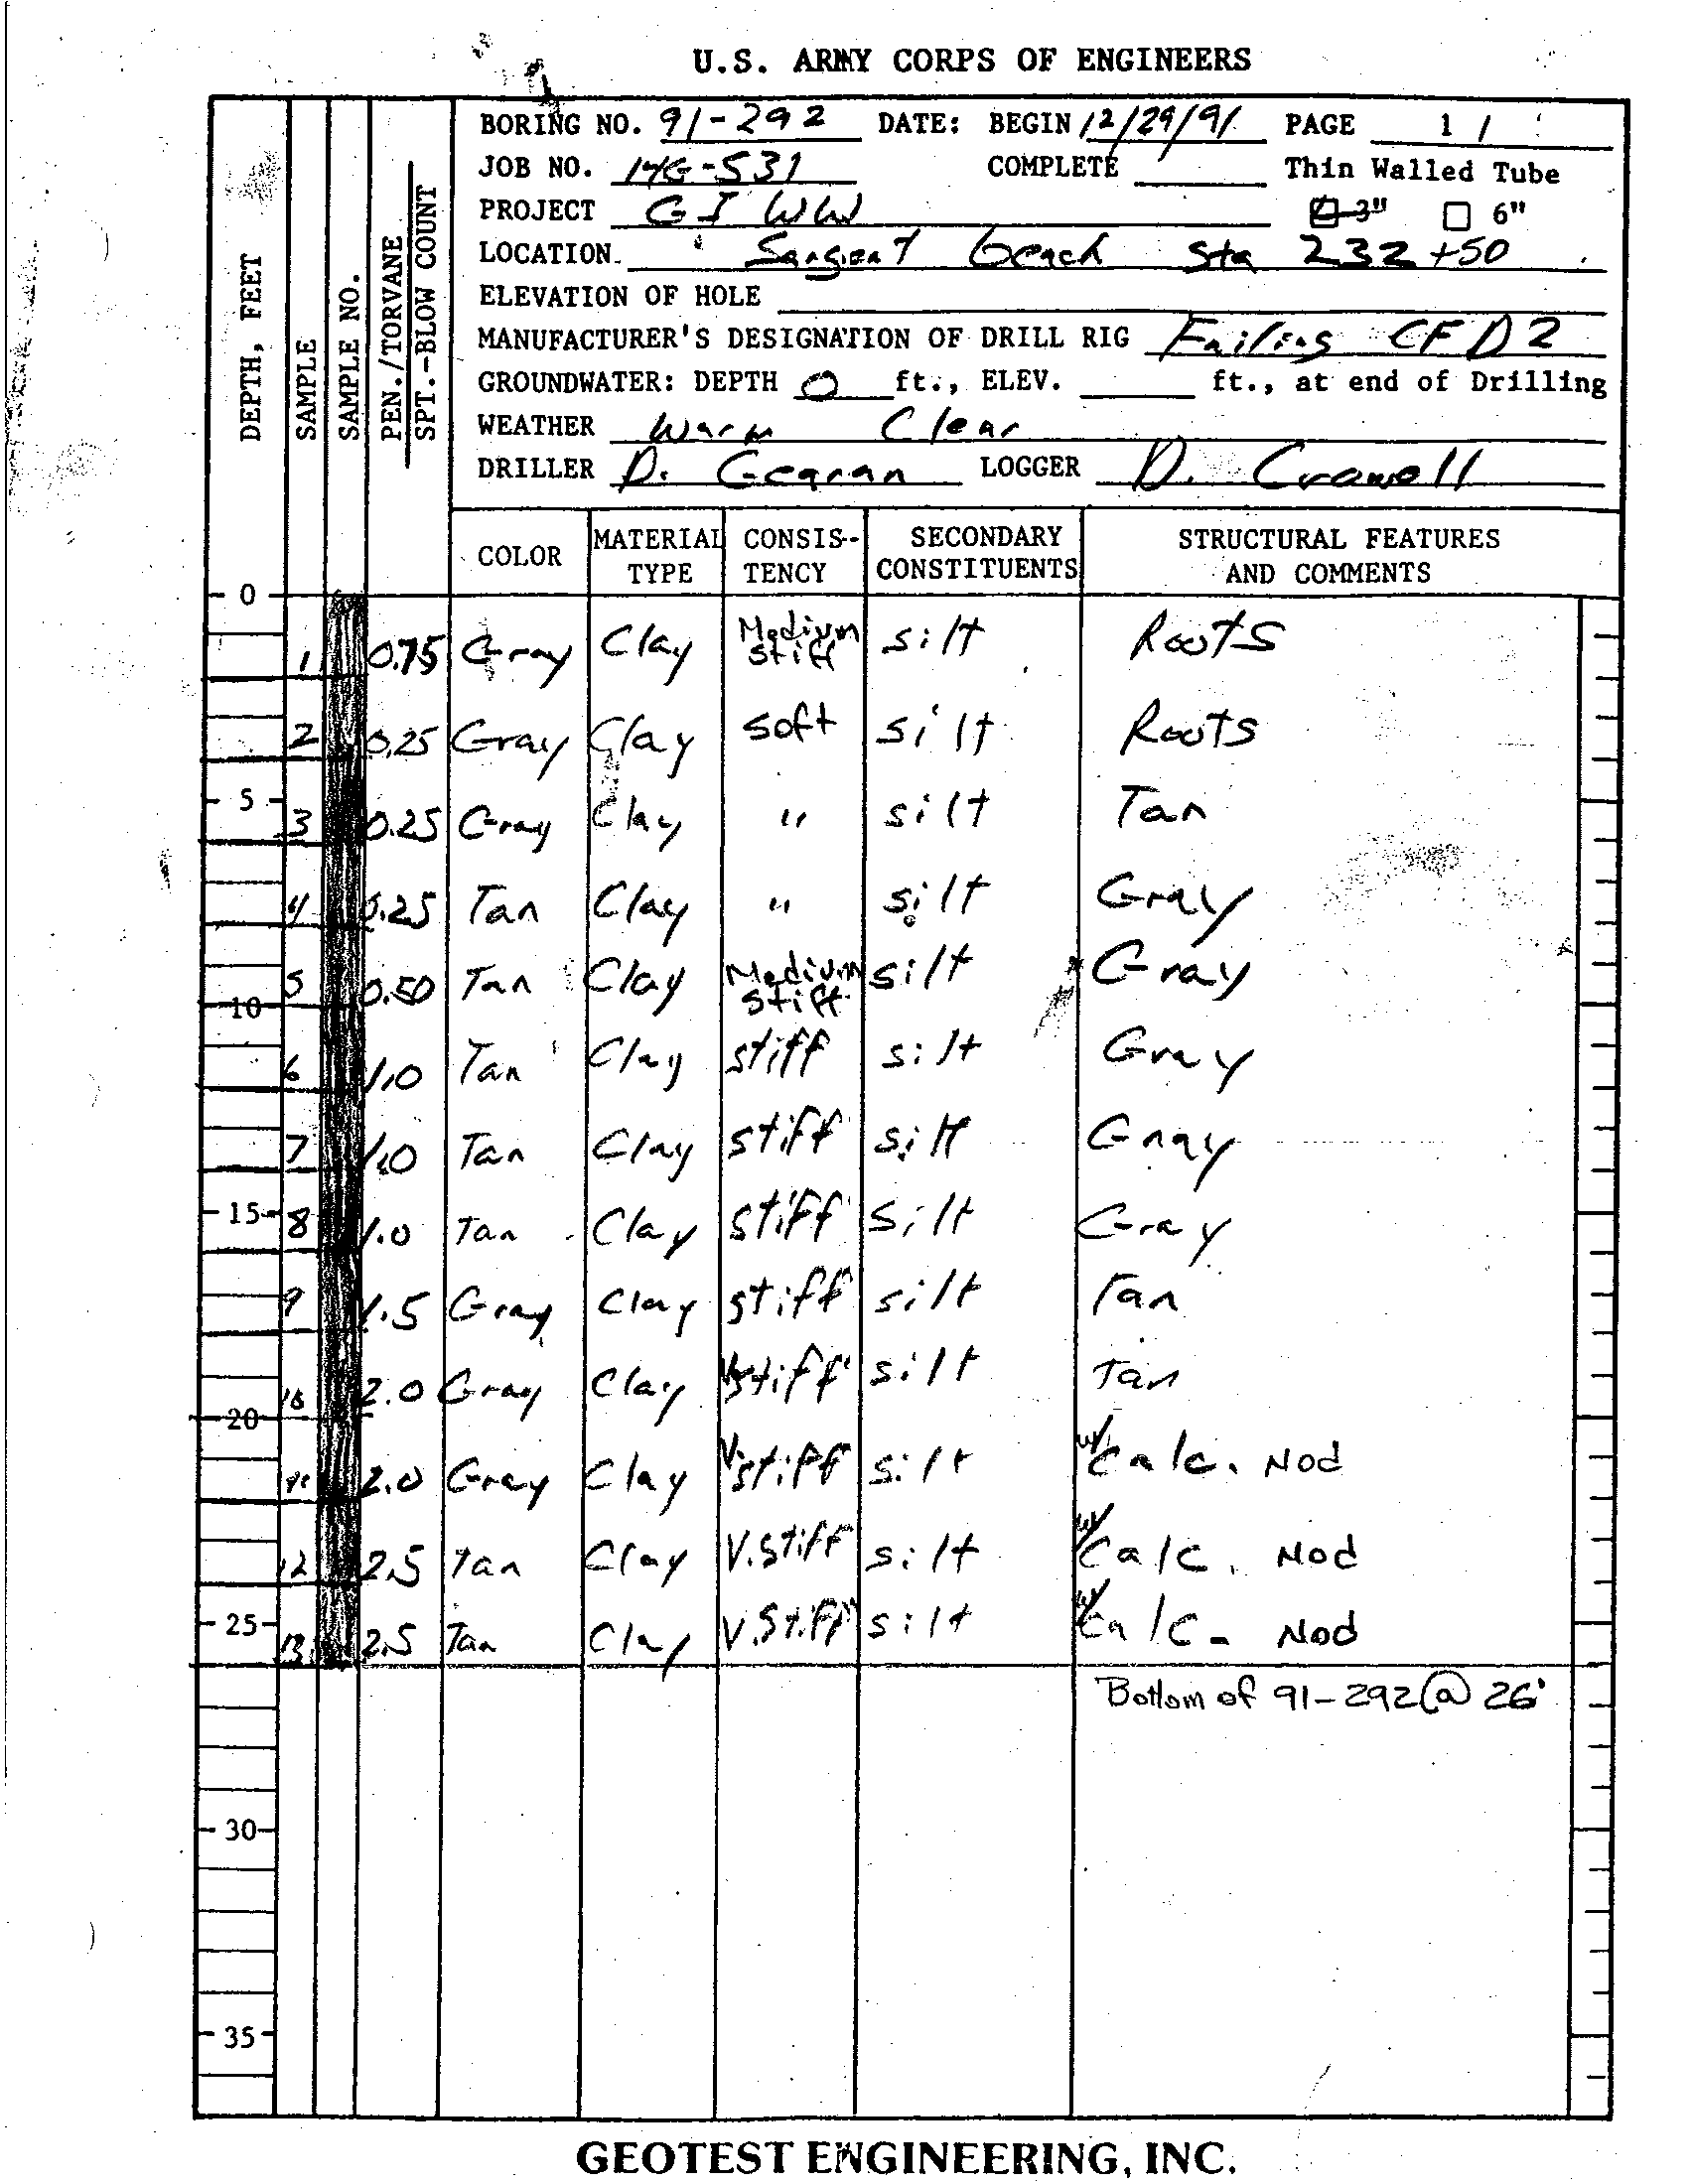 U.S. ARMY CORPS OF ENGINEERS
BORING NO. 91-292 DATE: BEGIN 12/29/91 PAGE 1 /
JOB NO. -531 COMPLETE Thin Walled Tube
PROJECT GIWW 3" 6"
LOCATION Sargent beach Sta 232+50
ELEVATION OF HOLE
MANUFACTURER'S DESIGNATION OF DRILL RIG Failing CFD2
GROUNDWATER: DEPTH 0 ft., ELEV. ft., at end of Drilling
WEATHER Warm Clear
DRILLER D. LOGGER D. Crowell
DEPTH, FEET
SAMPLE
SAMPLE NO.
PEN./TORVANE
SPT.-BLOW COUNT
COLOR MATERIAL TYPE CONSIS-TENCY SECONDARY CONSTITUENTS STRUCTURAL FEATURES AND COMMENTS
0
1 0.75 Gray Clay Medium stiff silt Roots
2 0.25 Gray Clay soft silt Roots
5
3 0.25 Gray Clay " silt Tan
4 0.25 Tan Clay " silt Gray
5 0.50 Tan Clay Medium stiff silt Gray
10
6 1.0 Tan Clay stiff silt Gray
7 1.0 Tan Clay stiff silt Gray
15
8 1.0 Tan Clay stiff silt Gray
9 1.5 Gray Clay stiff silt Tan
10 2.0 Gray Clay V.stiff silt Tan
20
11 2.0 Gray Clay V.stiff silt w/ Calc. Nod
12 2.5 Tan Clay V.stiff silt w/ Calc. Nod
25
13 2.5 Tan Clay V.Stiff silt w/ Calc. Nod
Bottom of 91-292 @ 26'
30
35
GEOTEST ENGINEERING, INC.